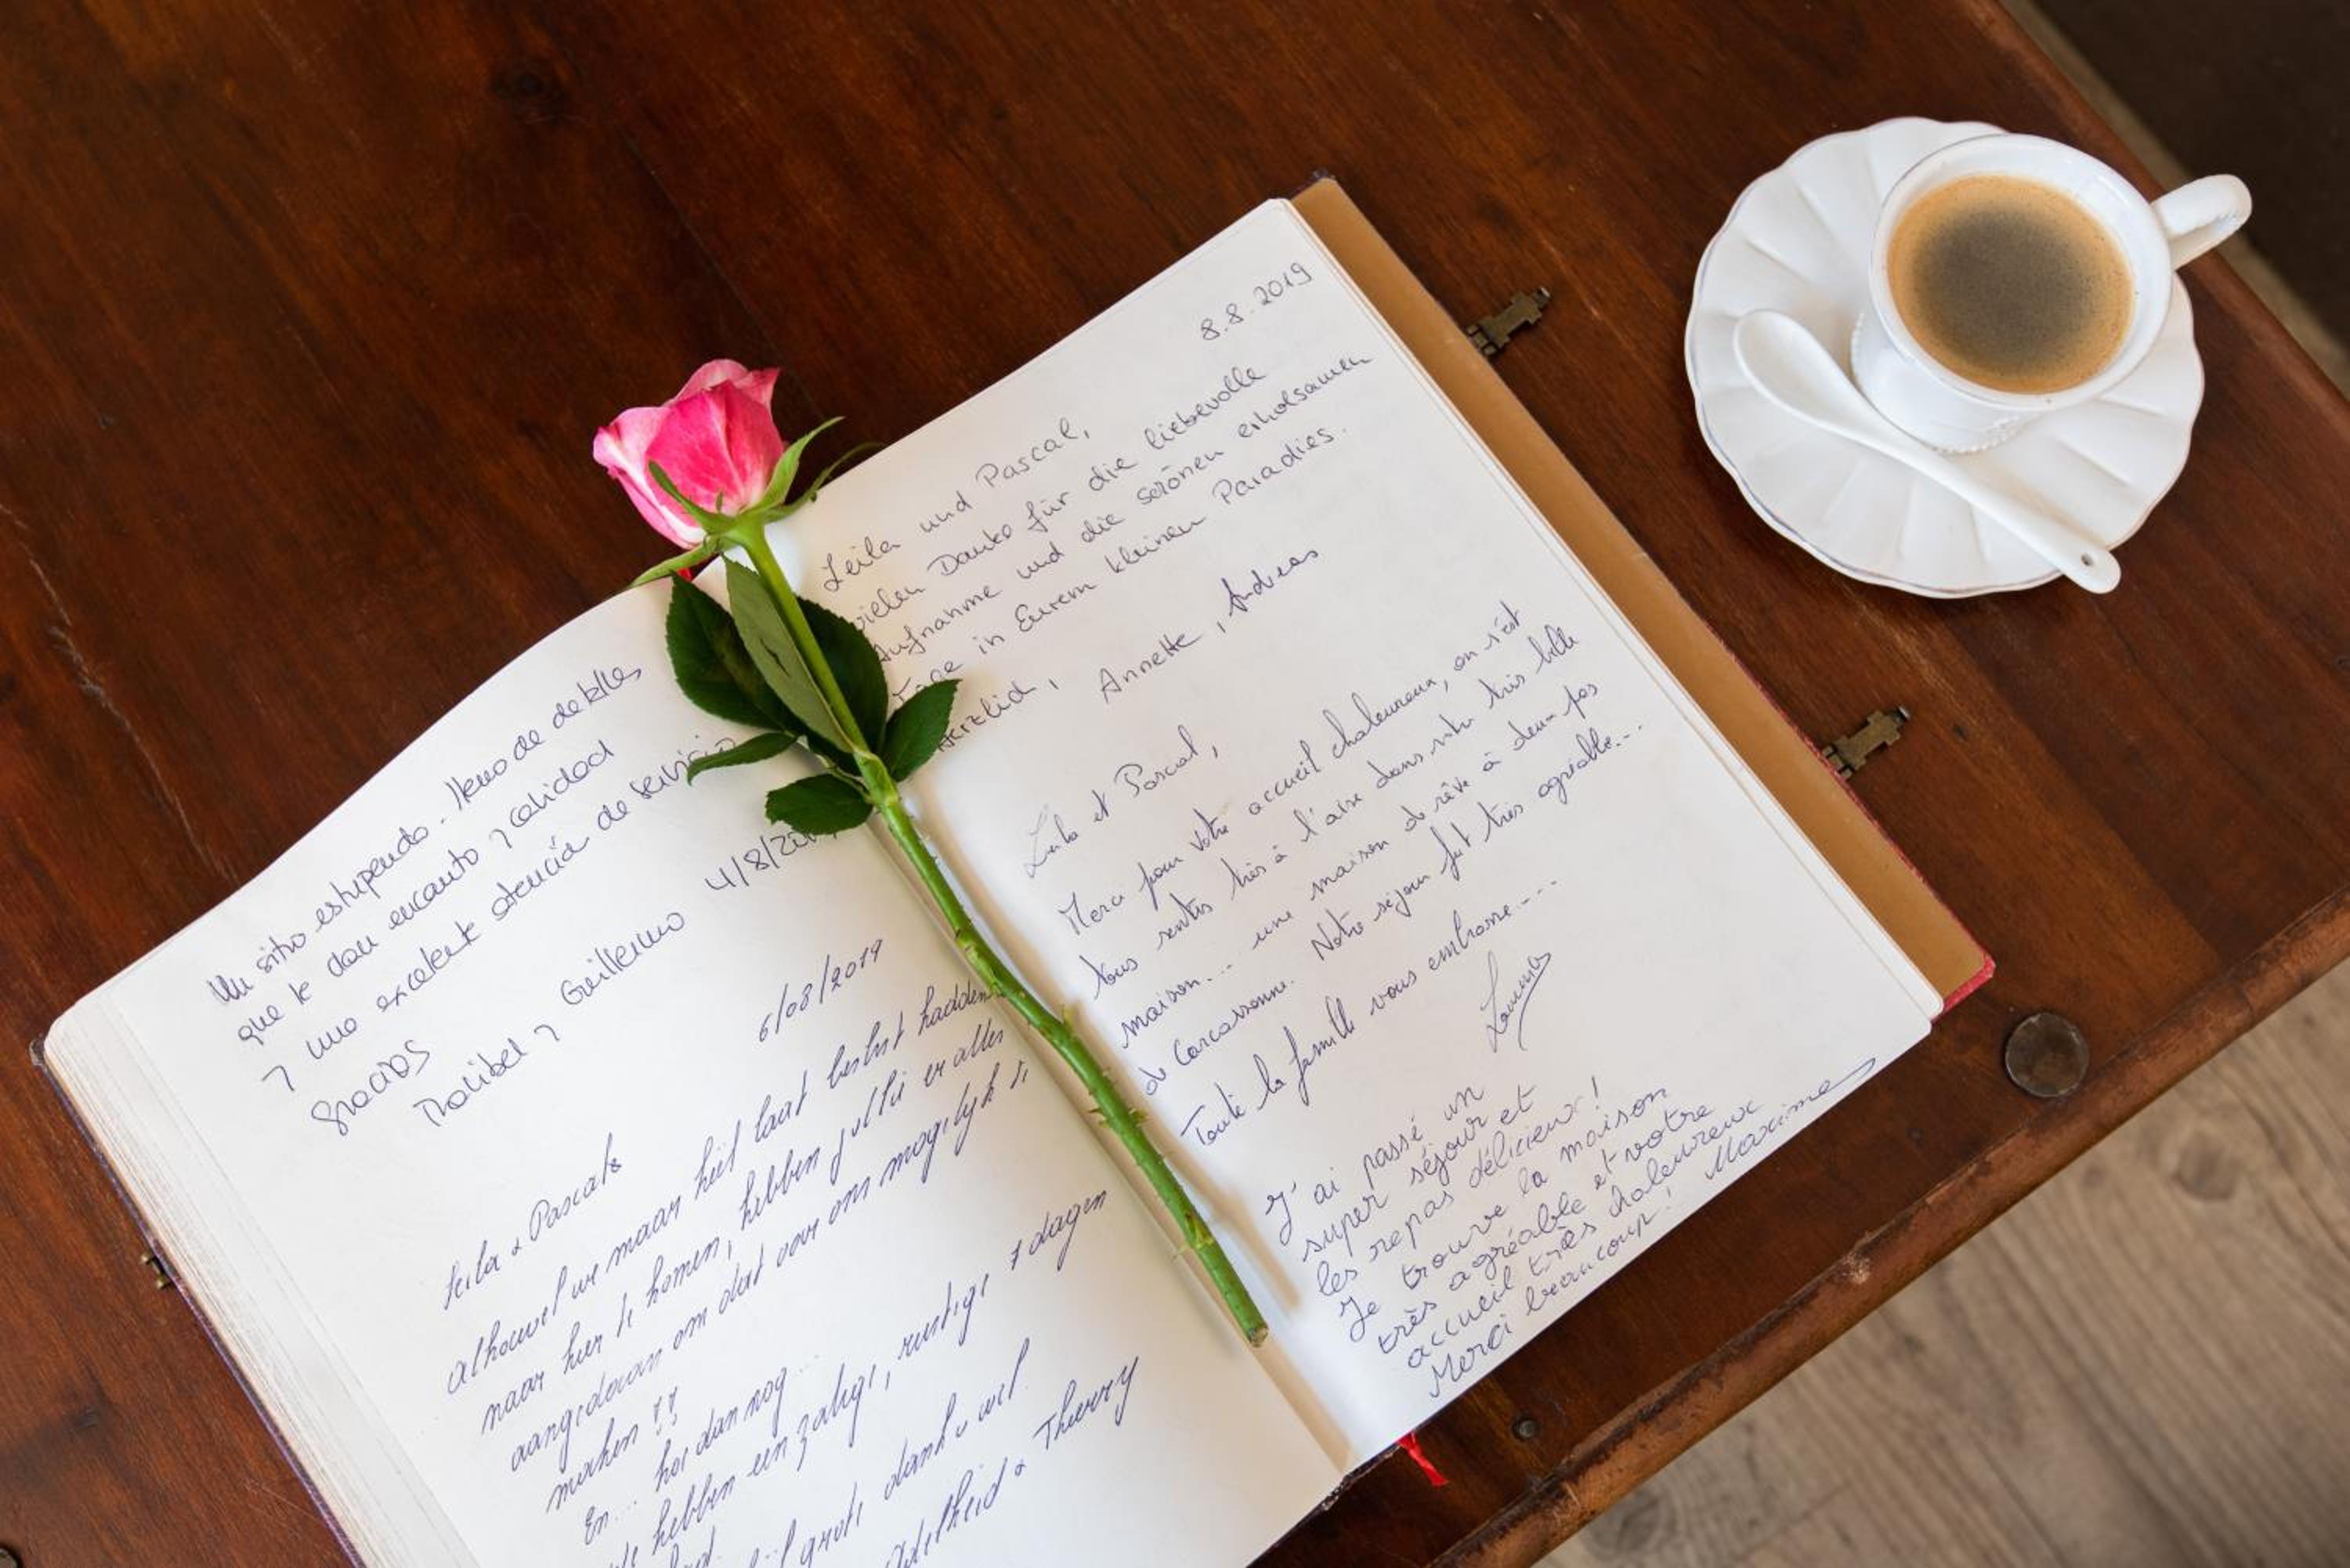 Un sitio estupendo. Lleno de detalles
que le dan encanto y calidad
y una excelente atención de servicio
gracias
Maribel y Guillermo 4/8/20
6/08/2019
Leila & Pascale
alhoewel we maar heel laat beslist hadden
naar hier te komen, hebben jullie er alles
aangedaan om dat voor ons mogelijk te
maken !!
En... hoe dan nog...
hebben een zalige, rustige 7 dagen
grote dank u wel.
Adelheid & Thierry
8.8.2019
Leila und Pascal,
vielen Danke für die liebevolle
Aufnahme und die schönen erholsamen
Tage in Eurem kleinen Paradies.
Herzlich, Annette, Andreas
Leila et Pascal,
Merci pour votre accueil chaleureux, on s'est
tous sentis très à l'aise dans votre très belle
maison... une maison de rêve à deux pas
de Carcassonne. Notre séjour fut très agréable...
Toute la famille vous embrasse....
J'ai passé un
super séjour et
les repas délicieux !
Je trouve la maison
très agréable et votre
accueil très chaleureux
Merci beaucoup! Maxime